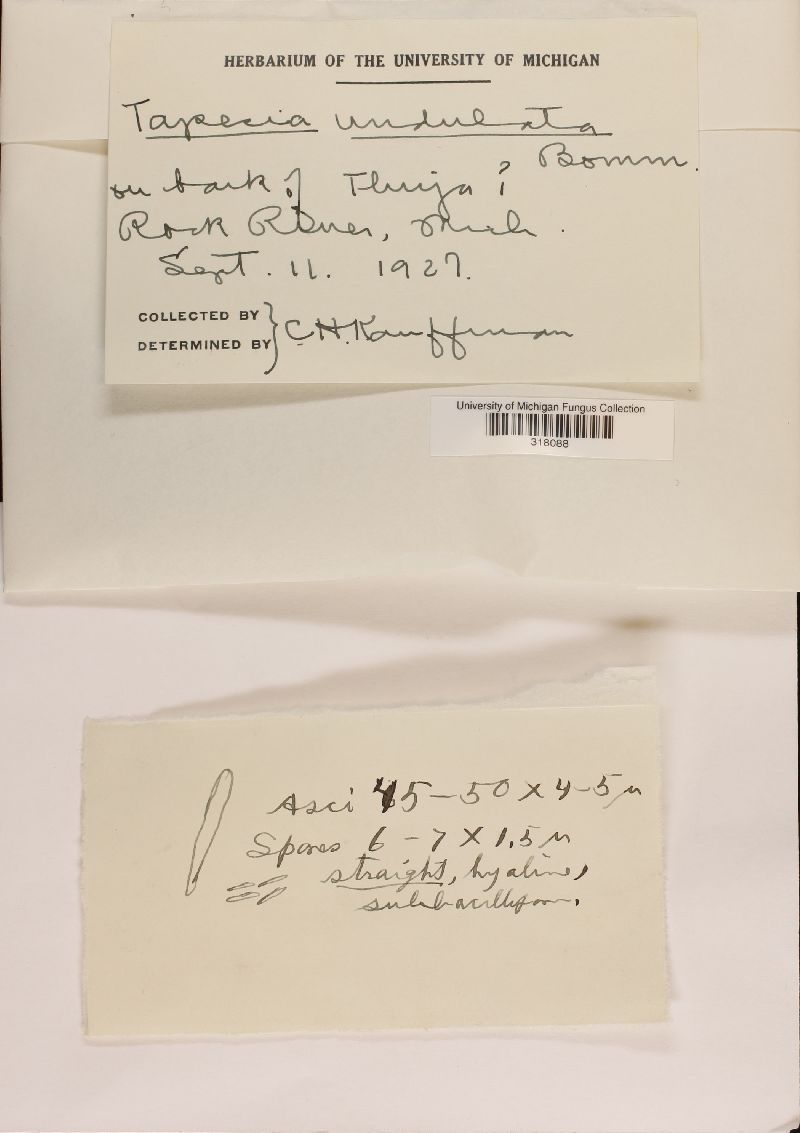 HERBARIUM OF THE UNIVERSITY OF MICHIGAN
Tapesia undulata
Bomm.
on bark of Thuja?
Rock River, Mich.
Sept. 11. 1927.
COLLECTED BY
DETERMINED BY } C.H. Kauffman
University of Michigan Fungus Collection
318088
Asci 45-50 x 4-5 µ
Spores 6-7 x 1.5 µ
straight, hyaline,
subbacilliform.